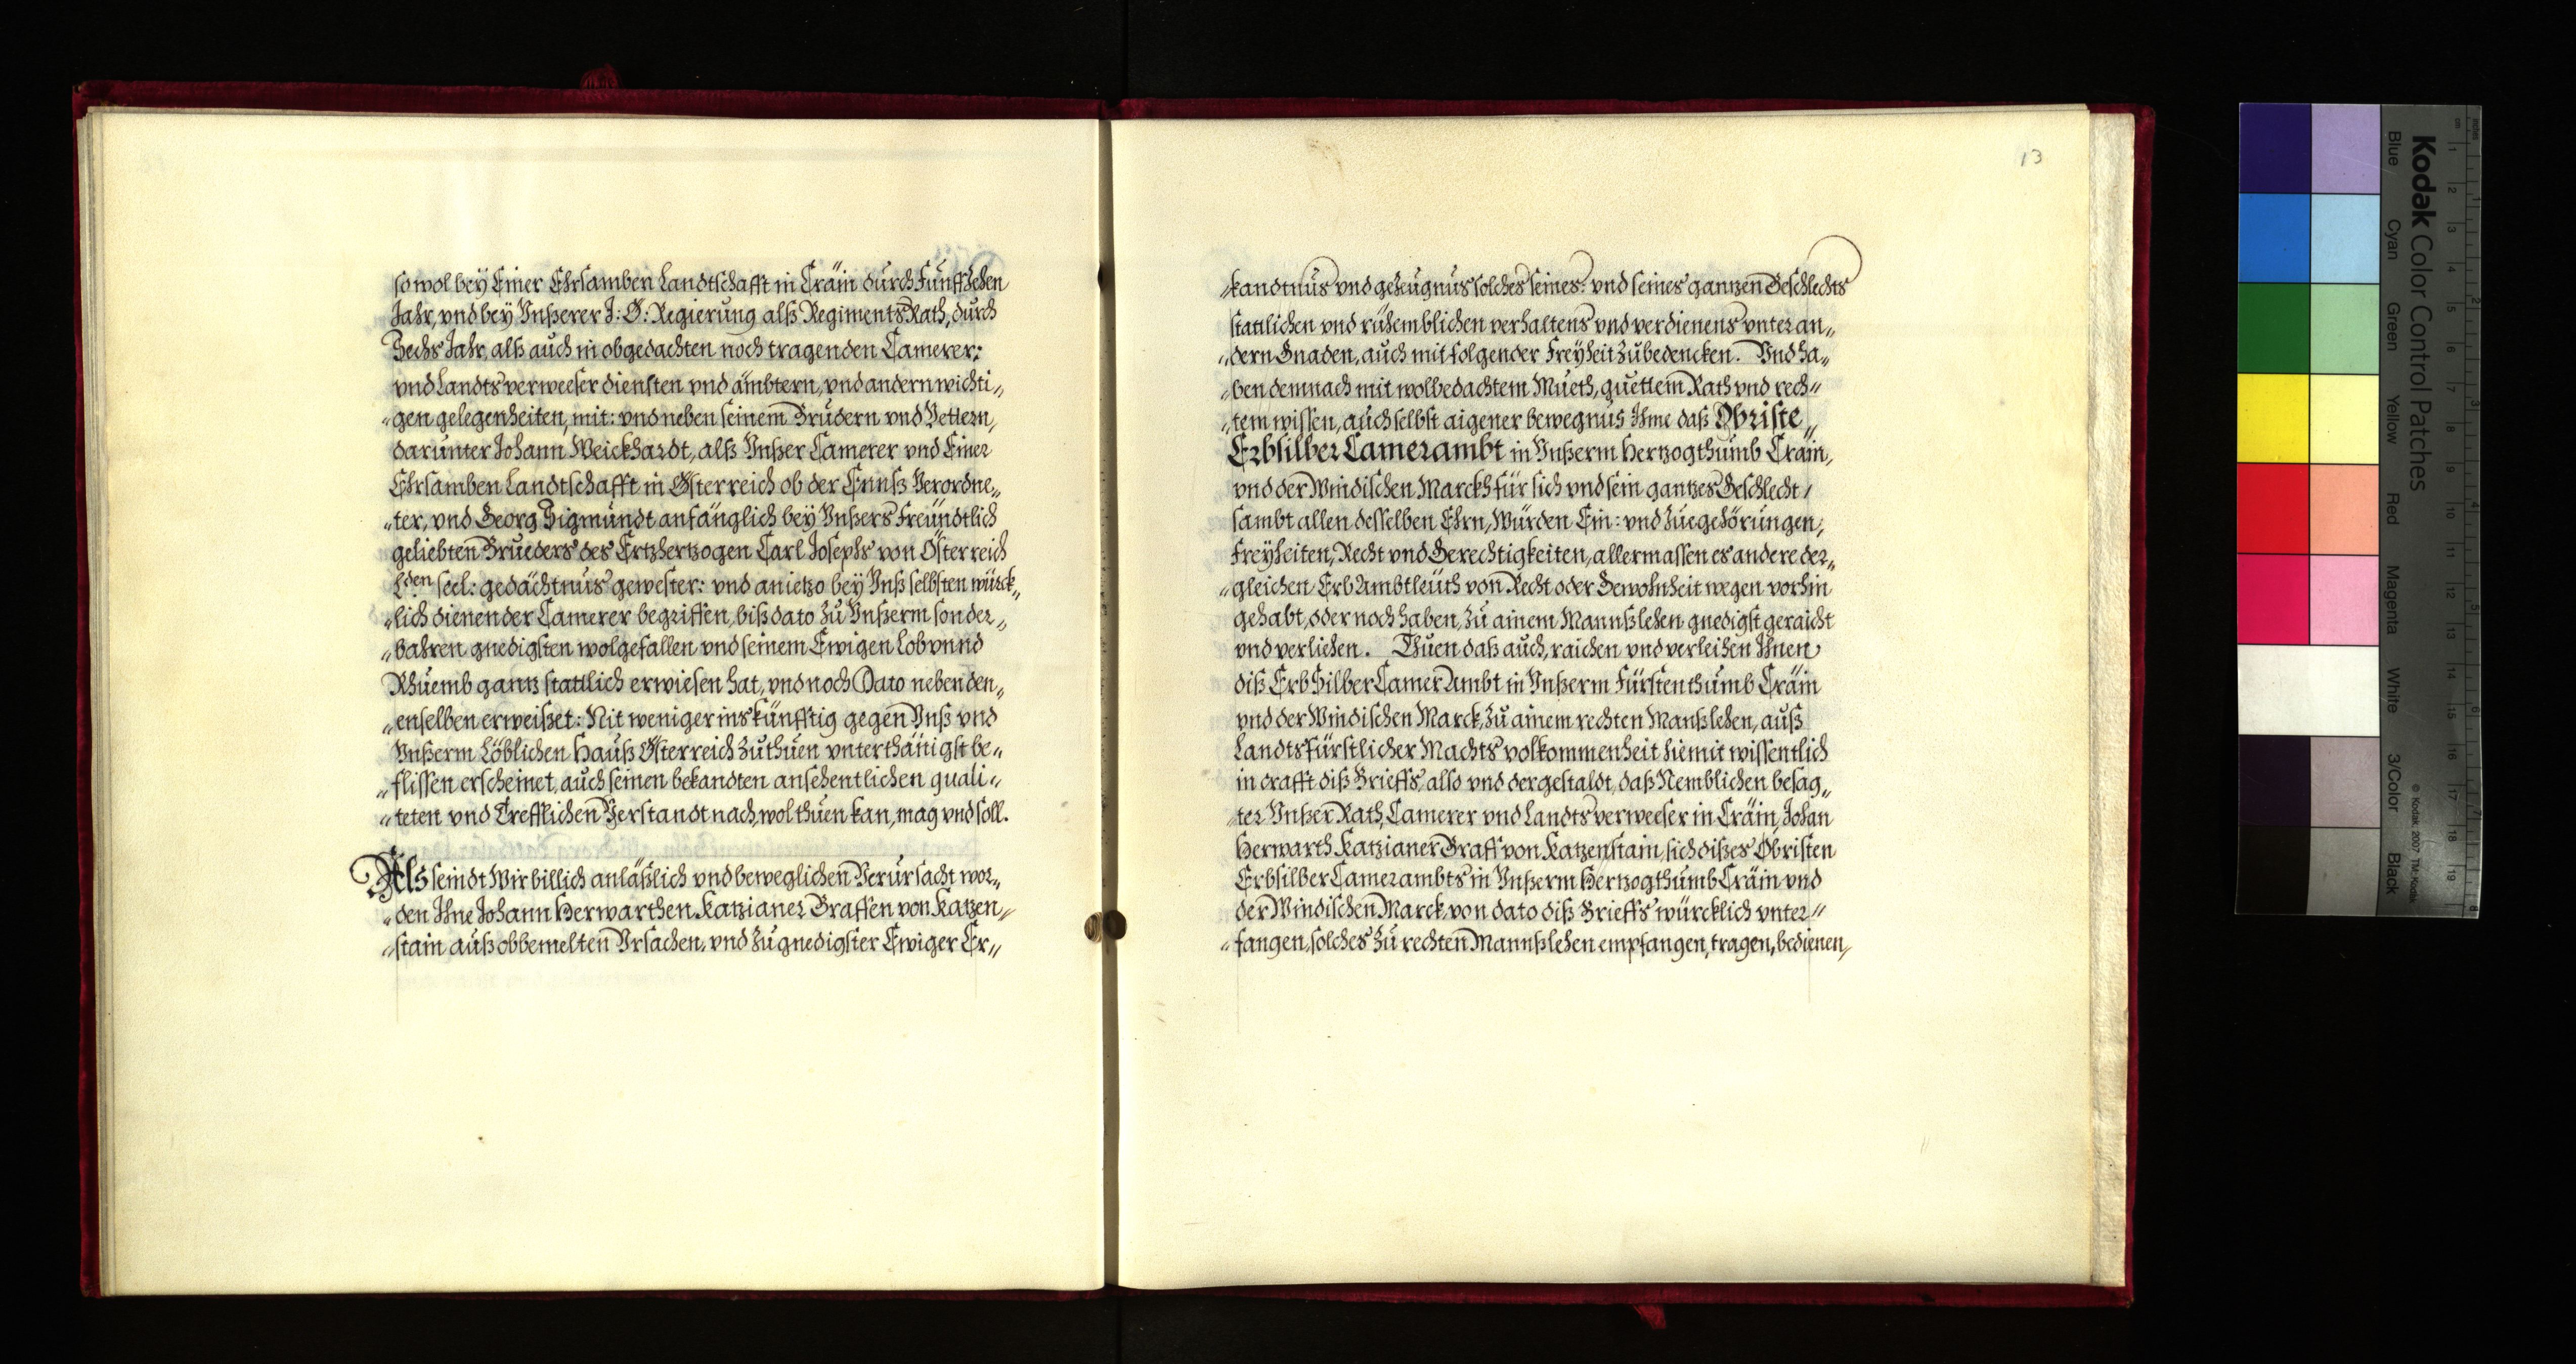 so wol beÿ Einer Ehrsamben Landtschafft in Cräin durch Fünffzehen
Jahr, vnd beÿ Vnßerer J: Ö: Regierung alß Regiments Rath, durch
Sechs Jahr, alß auch in obgedachten noch tragenden Camerer:
vnd Landtsverweeser diensten vnd ämbtern, vnd andern wichti„
„gen gelegenheiten, mit: vnd neben seinem Brüdern vnd Vettern,
darunter Johann Weickhardt, alß Vnßer Camerer vnd Einer
Ehrsamben Landtschafft in Österreich ob der Ennß Verordne„
„ter, vnd Georg Sigmundt anfänglich beÿ Vnßers Freundtlich
geliebten Brueders des Ertzhertzogen Carl Josephs von Österreich
Lden seel: gedächtnus gewester: vnd anietzo beÿ Vnß selbsten würck„
„lich dienender Camerer begriffen, biß dato zu Vnßerm sonder„
„bahren gnedigsten wolgefallen vnd seinem Ewigen Lob vnnd
Rhuemb gantz stattlich erwiesen hat, vnd noch Dato neben den„
„enselben erweißet: Nit weniger ins künfftig gegen Vnß vnd
Vnßerm Löblichen Hauß Österreich zuthuen vnterthänigst be„
„flissen erscheinet, auch seinen bekandten ansehentlichen quali„
„teten vnd Trefflichen Verstandt nach, wol thuen kan, mag vnd soll.
Als seindt Wir billich anläßlich vnd beweglichen Verursacht wor„
„den Ihne Johann Herwarthen Katzianer Graffen von Katzen„
„stain auß obbemelten Vrsachen, vnd zu gnedigster Ewiger Er„
13
„kandtnus vnd gezeugnus solches seines: vnd seines gantzen Geschlechts
stattlichen vnd rühemblichen verhaltens vnd verdienens vnter an„
„dern Gnaden, auch mit folgender Freÿheit zubedencken. Vnd ha„
„ben demnach mit wolbedachtem Mueth, guettem Rath vnd rech„
„tem wissen, auch selbst aigener bewegnus Ihme daß Obriste
Erbsilber Camerambt in Vnßerm Hertzogthumb Cräin,
vnd der Windischen Marckh für sich vnd sein gantzes Geschlecht,
sambt allen desselben Ehrn, Würden Ein: vnd zuegehörungen,
Freÿheiten, Recht vnd Gerechtigkeiten, allermassen es andere der„
„gleichen Erb Ambtleüth von Recht oder Gewohnheit wegen vorhin
gehabt, oder noch haben, zu ainem Mannßlehen gnedigst geraicht
vnd verliehen. Thuen daß auch, raichen vnd verleihen Ihnen
diß Erb Silber Camer Ambt in Vnßerm Fürstenthumb Cräin
vnd der Windischen Marck, zu ainem rechten Manßlehen, auß
Landtsfürstlicher Machts volkommenheit hiemit wissentlich
in crafft diß Brieffs, also vnd dergestaldt, daß Nemblichen besag„
„ter Vnßer Rath, Camerer vnd Landtsverweeser in Cräin, Johan
Herwarth Katzianer Graff von Katzenstain, sich dißes Obristen
Erbsilber Camerambts in Vnßerm Hertzogthumb Cräin vnd
der Windischen Marck, von dato diß Brieffs würcklich vnter„
„fangen, solches zu rechten Mannßlehen empfangen, tragen, bedienen,
Kodak Color Control Patches
© Kodak, 2007 TM: Kodak
Blue Cyan Green Yellow Red Magenta White 3/Color Black